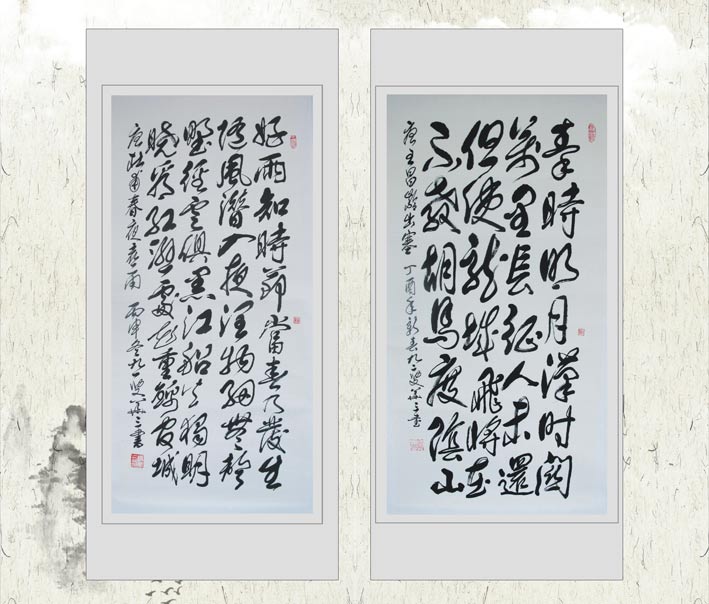 好雨知時節當春乃發生
隨風潛入夜潤物細無聲
野徑雲俱黑江船火獨明
曉看紅濕處花重錦官城
唐杜甫春夜喜雨 丙申冬九一叟 書
秦時明月漢時關
萬里長征人未還
但使龍城飛將在
不教胡馬度陰山
唐王昌齡出塞 丁酉年新春九二叟 書